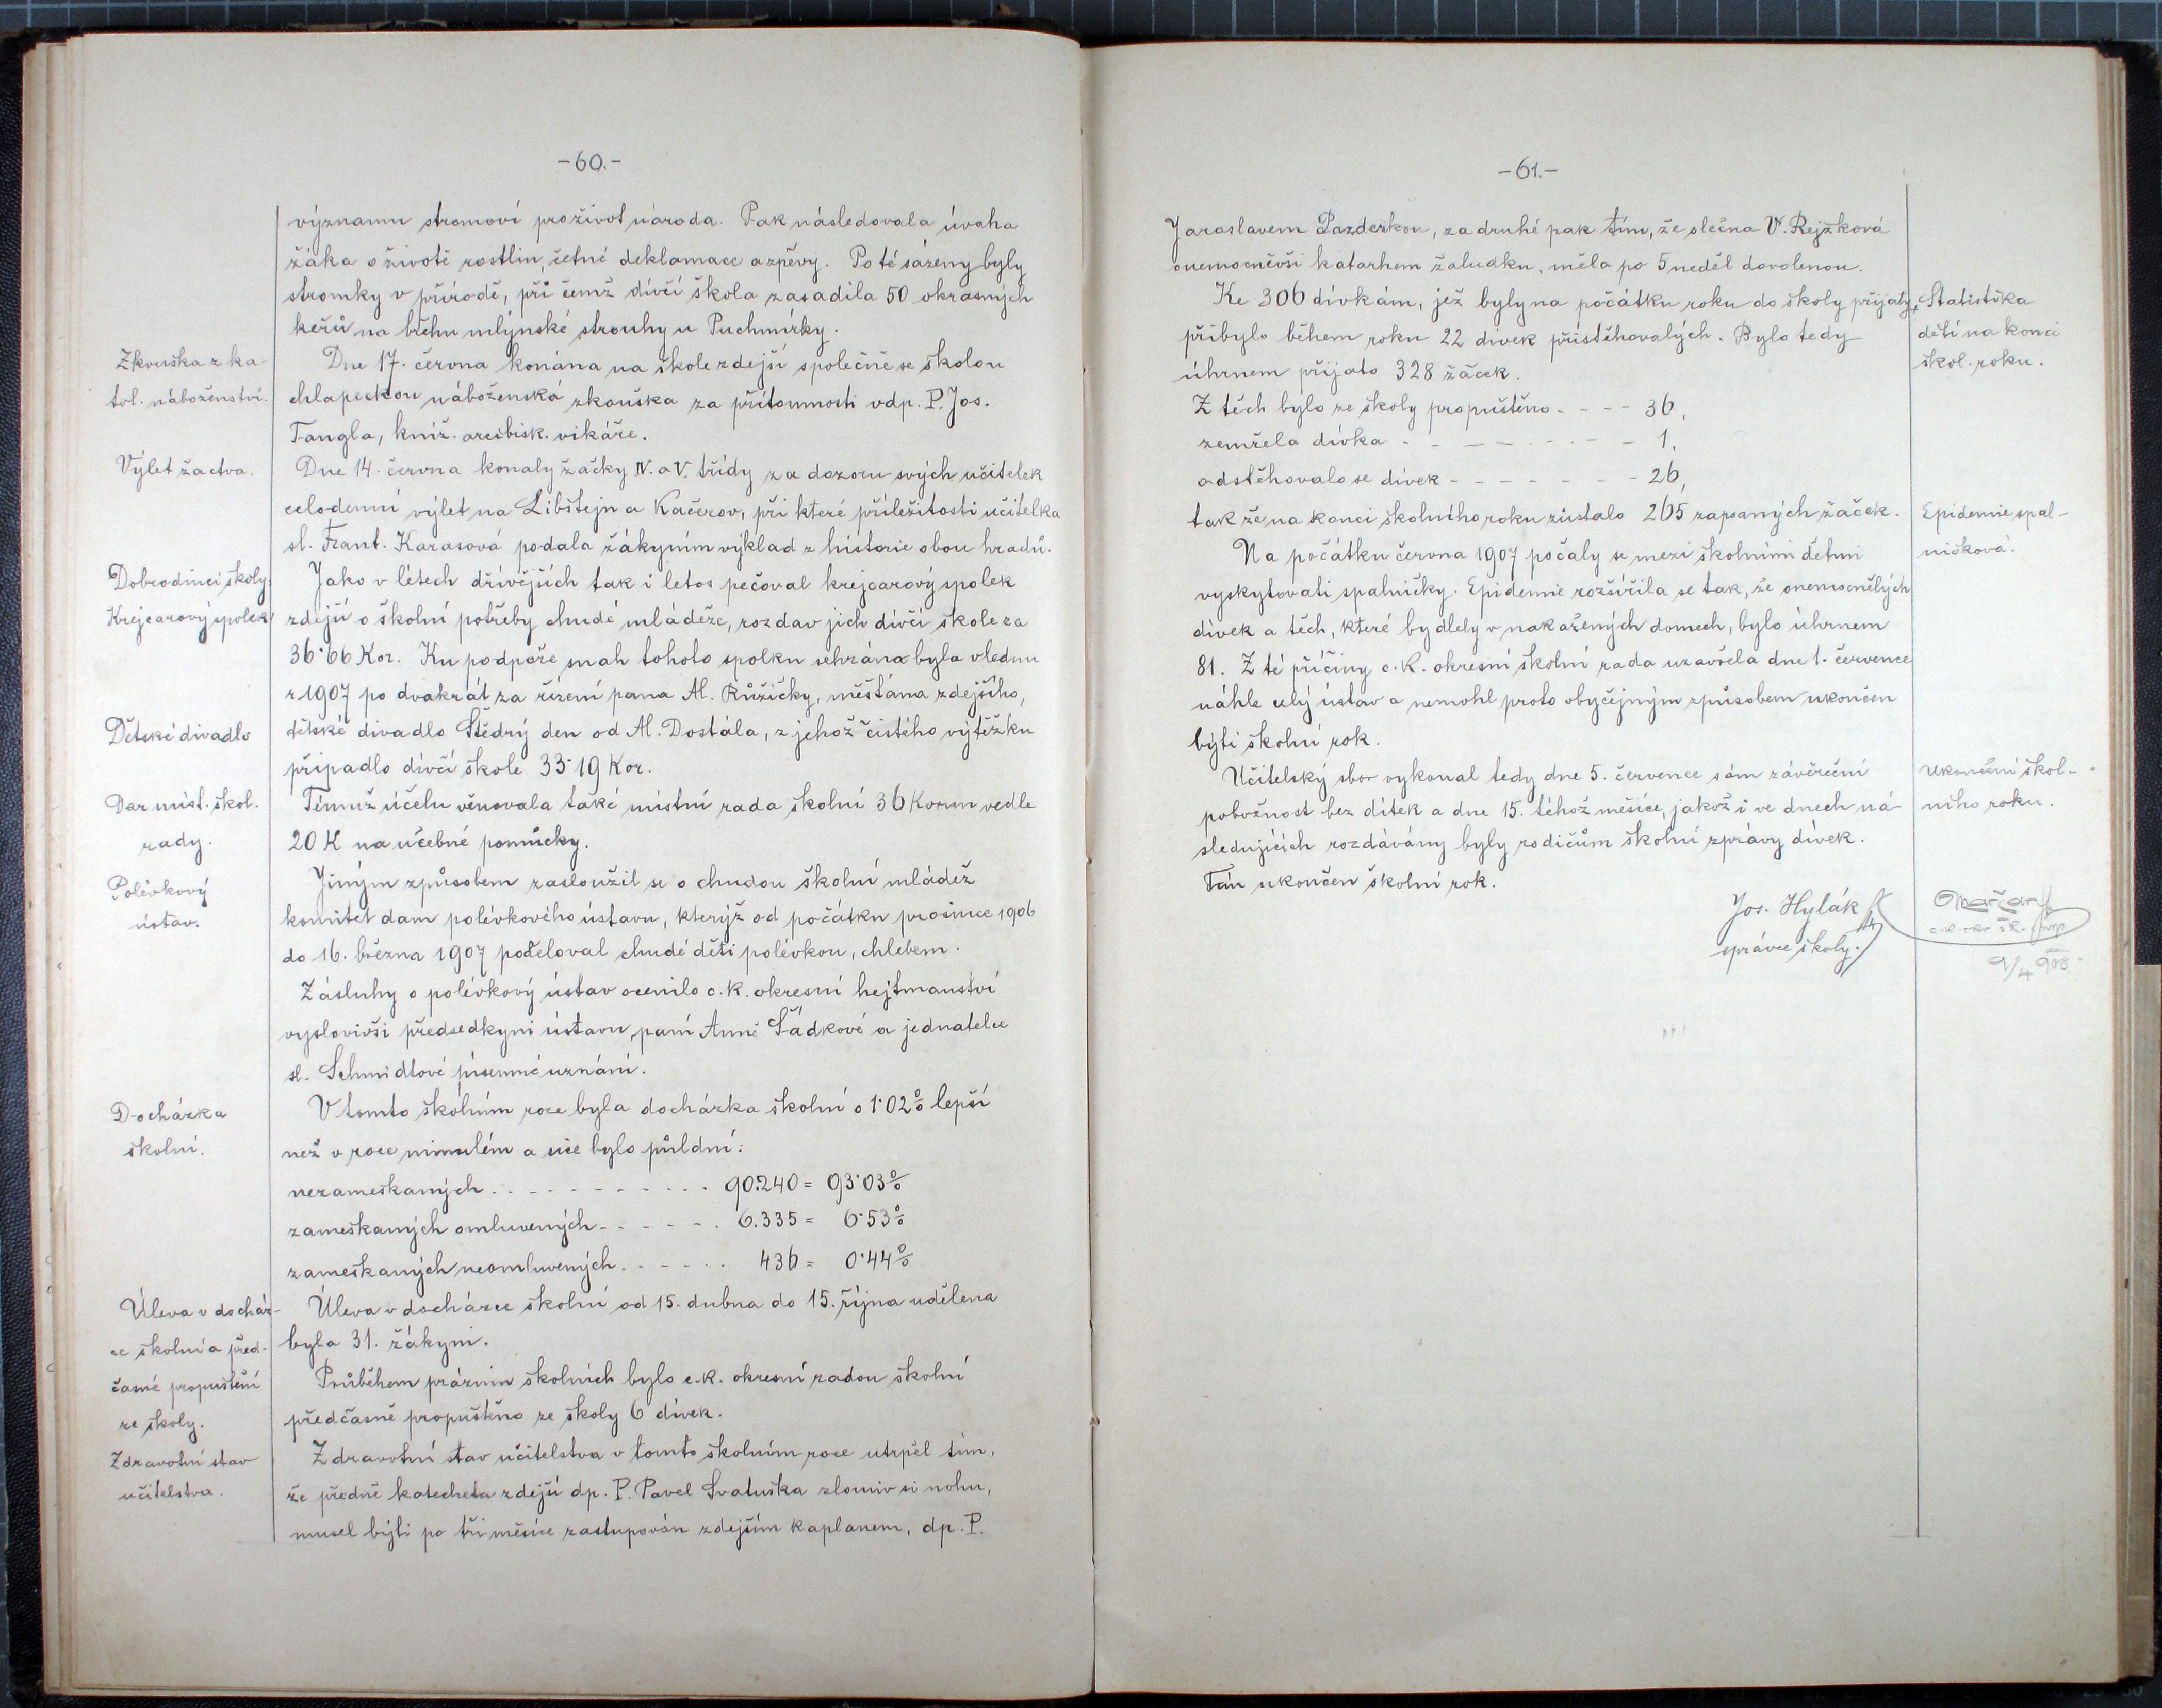 -60.-
významu stromoví pro život národa. Pak následovala úvaha
žáka o životě rostlin, četné deklamace a zpěvy. Po té sázeny byly
stromky v přírodě, při čemž dívčí škola zasadila 50 okrasných
keřů na břehu mlýnské strouhy u Puchmírky.
Zkouška z ka-
tol. náboženství.
Dne 17. června konána na škole zdejší společně se školou
chlapeckou náboženská zkouška za přítomnosti vdp. P. Jos.
Tangla, kníž. arcibisk. vikáře.
Výlet žactva.
Dne 14. června konaly žačky IV. a V. třídy za dozoru svých učitelek
celodenní výlet na Libštejn a Kačerov, při které příležitosti učitelka
sl. Frant. Karasová podala žákyním výklad z historie obou hradů.
Dobrodinci školy:
Krejcarový spolek
Jako v létech dřívějších tak i letos pečoval krejcarový spolek
zdejší o školní potřeby chudé mládeže, rozdav jich dívčí škole za
36·66 Kor. Ku podpoře snah tohoto spolku sehrána byla v lednu
r 1907 po dvakrát za řízení pana Al. Růžičky, měšťana zdejšího,
Dětské divadlo
dětské divadlo Štědrý den od Al. Dostála, z jehož čistého výtěžku
připadlo dívčí škole 33·19 Kor.
Dar míst. škol.
rady.
Témuž účelu věnovala také místní rada školní 36 Korun vedle
20 K na učebné pomůcky.
Polévkový
ústav.
Jiným způsobem zasloužil se o chudou školní mládež
komitét dam polévkového ústavu, kterýž od počátku prosince 1906
do 16. března 1907 poděloval chudé děti polévkou, chlebem.
Zásluhy o polévkový ústav ocenilo c. k. okresní hejtmanství
vyslovivši předsedkyni ústavu, paní Anně Šádkové a jednatelce
sl. Schmidtové písemné uznání.
Docházka
školní.
V tomto školním roce byla docházka školní o 1·02% lepší
než v roce minulém a sice bylo půldní:
nezameškaných - - - - 90.240 = 93·03%
zameškaných omluvených - - - - 6.335 = 6·53%
zameškaných neomluvených - - - - 436 = 0·44%
Úleva v docház-
ce školní a před-
časné propuštění
ze školy.
Úleva v docházce školní od 15. dubna do 15. října udělena
byla 31. žákyni.
Průběhem prázdnin školních bylo c. k. okresní radou školní
předčasně propuštěno ze školy 6 dívek.
Zdravotní stav
učitelstva.
Zdravotní stav učitelstva v tomto školním roce utrpěl tím,
že předně katecheta zdejší dp. P. Pavel Svatuška zlomiv si nohu,
musel býti po tři měsíce zastupován zdejším kaplanem, dp. P.
-61.-
Jaroslavem Pazderkou, za druhé pak tím, že slečna V. Rejžková
onemocněvši katarhem žaludku, měla po 5 neděl dovolenou.
Ke 306 dívkám, jež byly na počátku roku do školy přijaty,
přibylo během roku 22 dívek přistěhovalých. Bylo tedy
úhrnem přijato 328 žaček.
Statistika
dětí na konci
škol. roku.
Z těch bylo ze školy propuštěno - - - - 36,
zemřela dívka - - - - 1,
odstěhovalo se dívek - - - - 26,
tak že na konci školního roku zůstalo 265 zapsaných žaček.
Epidemie spal-
ničková.
Na počátku června 1907 počaly se mezi školními dětmi
vyskytovati spalničky. Epidemie rozšířila se tak, že onemocnělých
dívek a těch, které bydlely v nakažených domech, bylo úhrnem
81. Z té příčiny c. k. okresní školní rada uzavřela dne 1. července
náhle celý ústav a nemohl proto obyčejným způsobem ukončen
býti školní rok.
Učitelský sbor vykonal tedy dne 5. července sám závěreční
pobožnost bez dítek a dne 15. téhož měsíce, jakož i ve dnech ná-
sledujících rozdávány byly rodičům školní zprávy dívek.
Tím ukončen školní rok.
Ukončení škol-
ního roku.
Jos. Hylák
správce školy.
c. k. okr. šk. insp.
9/4 908.